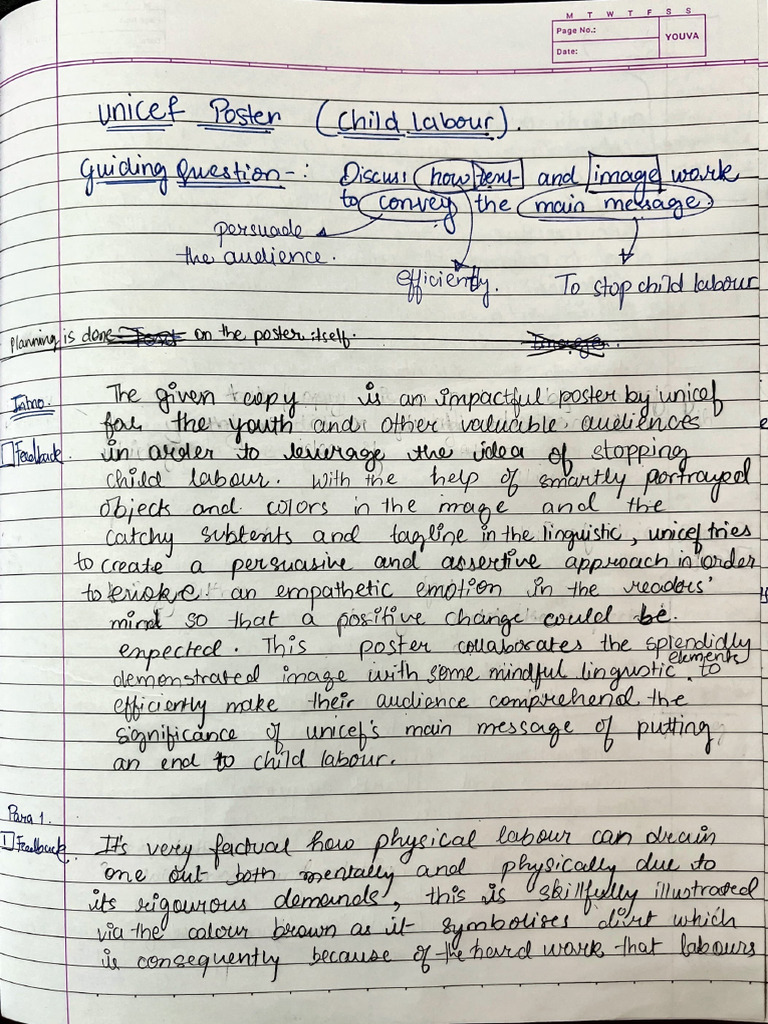 M T W T F S S
Page No.:
YOUVA
Date:
Unicef Poster (Child Labour).
Guiding Question-: Discuss how text and image work
to convey the main message.
persuade
the audience.
efficiently.
To stop child labour
Planning is done on the poster itself.
Intro.
The given copy is an impactful poster by unicef
for the youth and other valuable audiences
Feedback.
in order to leverage the idea of stopping
child labour. With the help of smartly portrayed
objects and colors in the image and the
catchy subtexts and tagline in the linguistic, unicef tries
to create a persuasive and assertive approach in order
to evoke an empathetic emotion in the readers'
mind so that a positive change could be
expected. This poster collaborates the splendidly
demonstrated image with some mindful lingustic elements to
efficiently make their audience comprehend the
significance of unicef's main message of putting
an end to child labour.
Para 1.
Feedback.
It's very factual how physical labour can drain
one out both mentally and physically due to
its rigourous demands, this is skillfully illustrated
via the colour brown as it symbolises dirt which
is consequently because of the hard work that labours